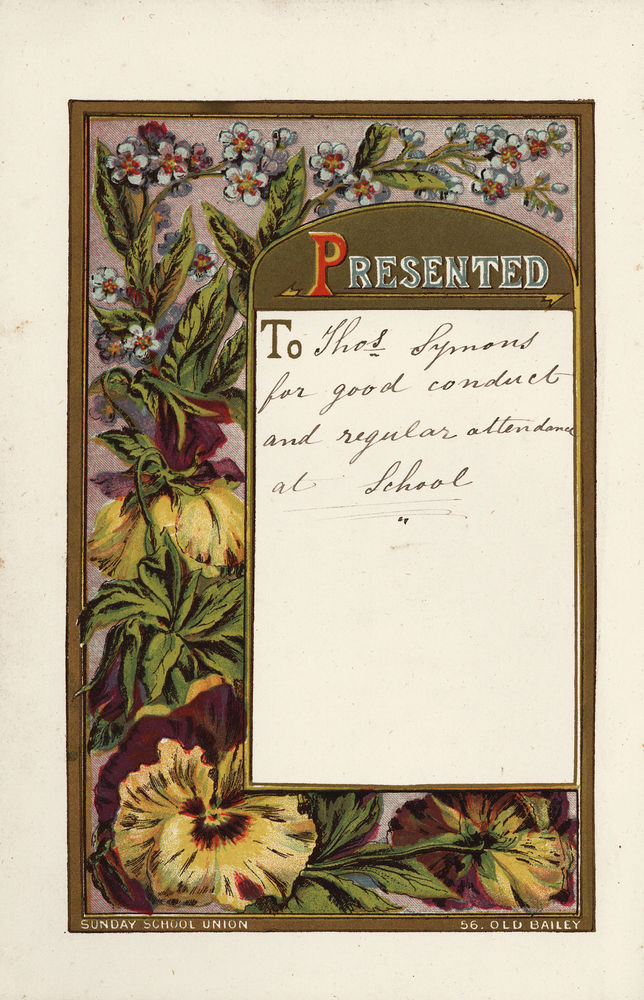 PRESENTED
To Thos Symons
for good conduct
and regular attendance
at School
SUNDAY SCHOOL UNION
56. OLD BAILEY